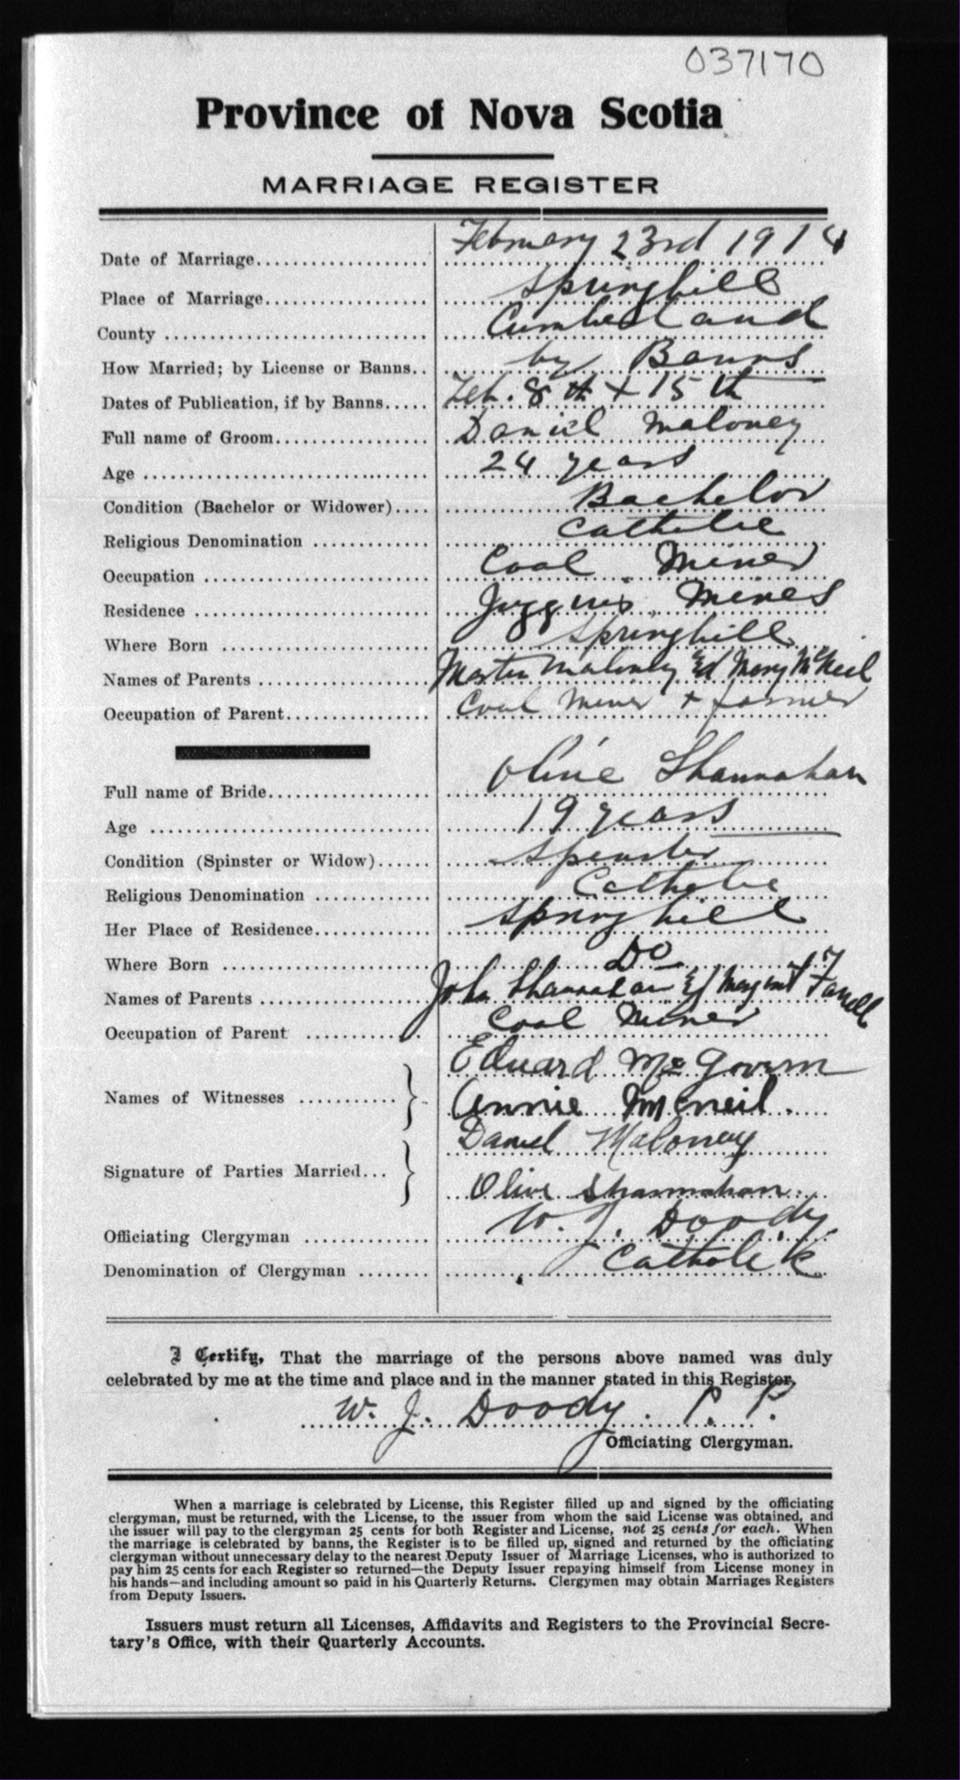 037170
Province of Nova Scotia
MARRIAGE REGISTER
Date of Marriage.................. February 23rd 1914
Place of Marriage................. Springhill
County ............................ Cumberland
How Married; by License or Banns.. by Banns
Dates of Publication, if by Banns..... Feb. 8th + 15th
Full name of Groom................ Daniel Maloney
Age ............................. 24 years
Condition (Bachelor or Widower).... Bachelor
Religious Denomination ............ Catholic
Occupation ....................... Coal Miner
Residence ........................ Joggins Mines
Where Born ..................... Springhill
Names of Parents ................. Martin Maloney Ed Mary McNeil
Occupation of Parent.............. Coal Miner + farmer
Full name of Bride................ Olive Shannahan
Age ............................. 19 years
Condition (Spinster or Widow)...... Spinster
Religious Denomination ............ Catholic
Her Place of Residence............ Springhill
Where Born ..................... Do
Names of Parents ................. John Shannahan Ed Margaret Farrell
Occupation of Parent ............ Coal Miner
Eduard McGovern
Names of Witnesses ........... } Annie McNeil.
Daniel Maloney
Signature of Parties Married... } Olive Shannahan
Officiating Clergyman ............ W. J. Doody
Denomination of Clergyman ........ Catholi'k
I Certify, That the marriage of the persons above named was duly
celebrated by me at the time and place and in the manner stated in this Register.
W. J. Doody. P. P.
Officiating Clergyman.
When a marriage is celebrated by License, this Register filled up and signed by the officiating
clergyman, must be returned, with the License, to the issuer from whom the said License was obtained, and
the issuer will pay to the clergyman 25 cents for both Register and License, not 25 cents for each. When
the marriage is celebrated by banns, the Register is to be filled up, signed and returned by the officiating
clergyman without unnecessary delay to the nearest Deputy Issuer of Marriage Licenses, who is authorized to
pay him 25 cents for each Register so returned—the Deputy Issuer repaying himself from License money in
his hands—and including amount so paid in his Quarterly Returns. Clergymen may obtain Marriages Registers
from Deputy Issuers.
Issuers must return all Licenses, Affidavits and Registers to the Provincial Secre-
tary's Office, with their Quarterly Accounts.